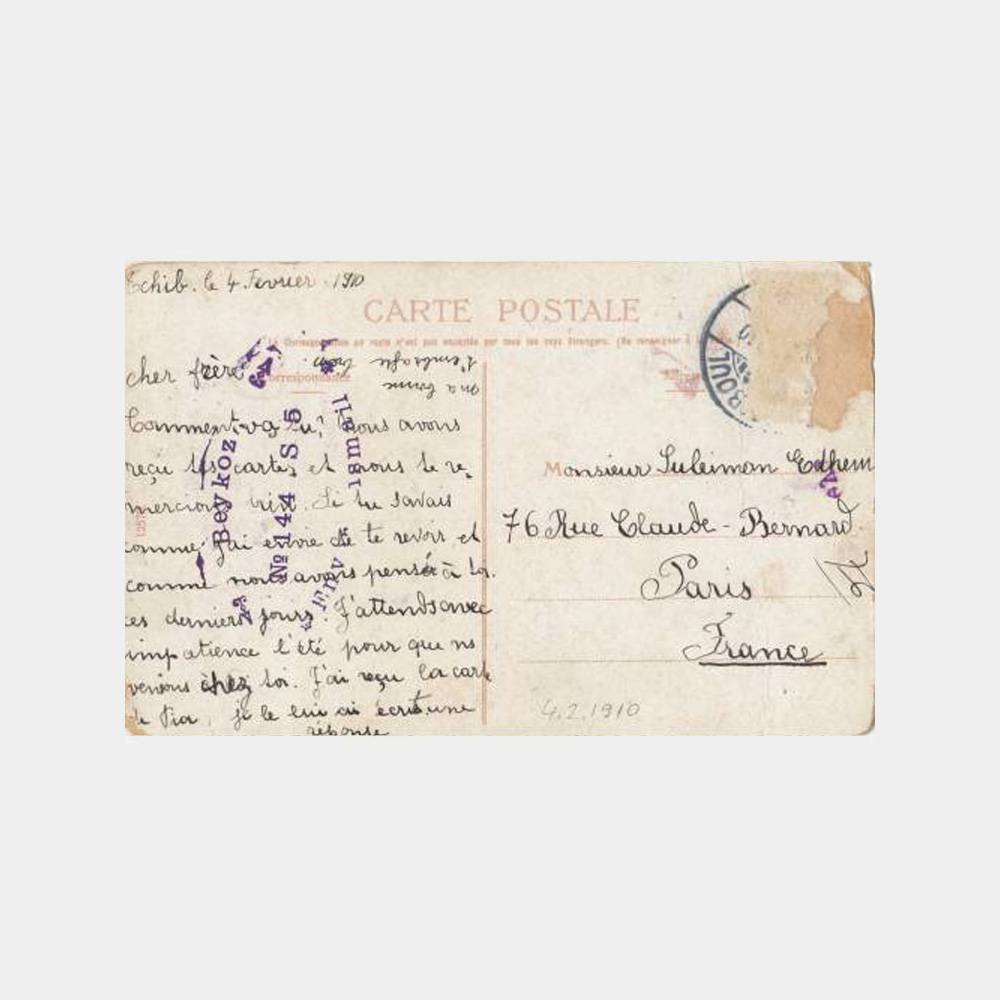 Tchib. le 4 Fevrier 1910
CARTE POSTALE
La Correspondance au recto n'est pas acceptée par tous les pays étrangers. (Se renseigner à la
Correspondance
cher frère
Comment vas tu? Nous avons
reçu tes cartes et nous te re,
mercions bien. Si tu savais
comme j'ai envie de te revoir et
comme nous avons pensé à toi
ces derniers jours. J'attends avec
impatience l'été pour que ns
venions chez toi. J'ai reçu la carte
de Pia, je le lui ai écrit une
réponse
t'embrasse bien.
ma bonne
Beykoz
№ 144 S 5
Emv
Ismail
BOUL
Monsieur Suleiman Edhem
76 Rue Claude-Bernard
Paris
France
4.2.1910